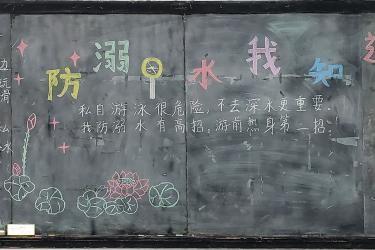 防溺水我知
私自游泳很危险，不去深水更重要.
我防溺水有高招，游前热身第一招！